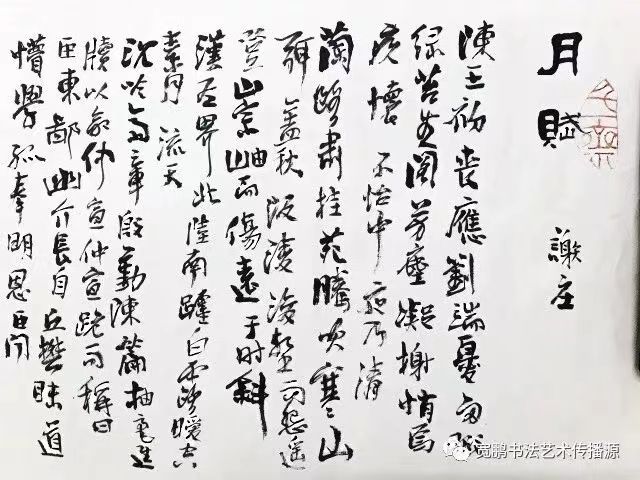 月賦
謝庄
陳王初喪應劉端憂多暇
綠苔生閣芳塵凝榭悄焉
疚懷不怡中夜乃清
蘭路肅桂苑騰吹寒山
弭蓋秋阪浚壑而怨遥
登山崇岫而傷遠于时斜
漢左界北陸南躔白露曖空
素月流天
沈吟齊章殷勤陳篇抽毫進
牘以命仲宣仲宣跪而稱曰
臣東鄙幽介長自丘樊昧道
懵學孤奉明恩臣聞
宽鹏书法艺术传播源